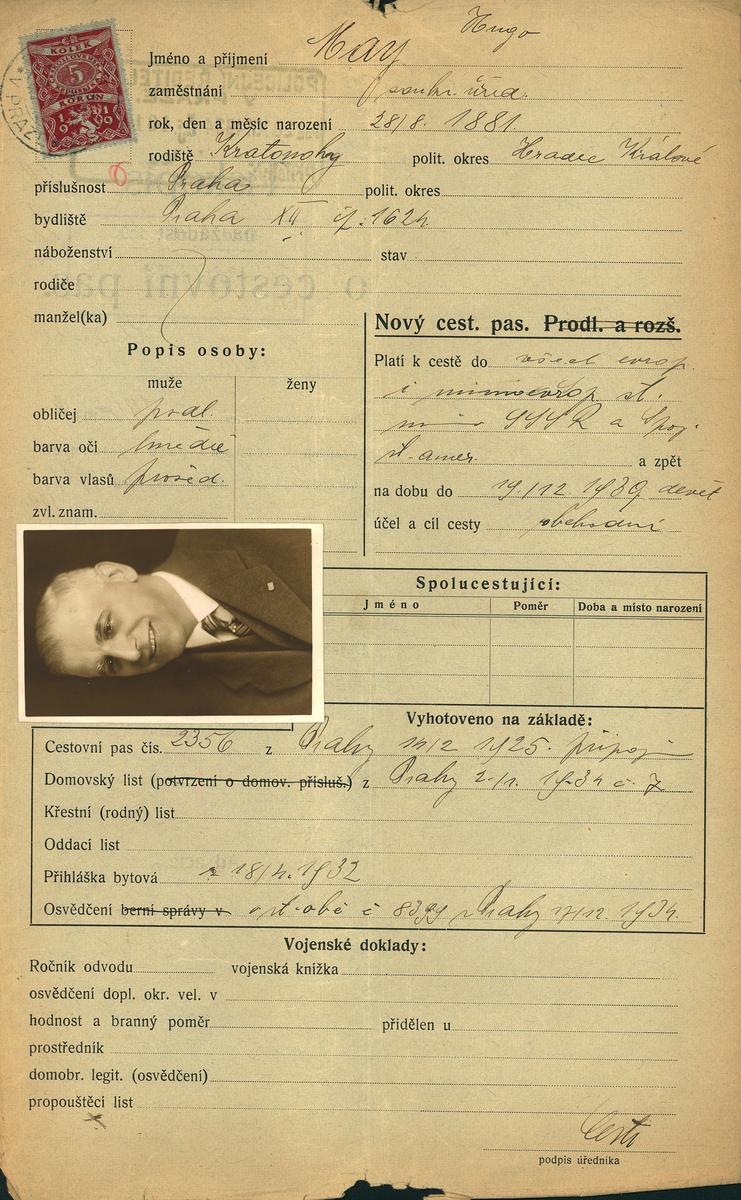 KOLEK
5
KORUN
1919
V PRAZE
Hugo
Jméno a příjmení May
zaměstnání soukr. úřed.
rok, den a měsíc narození 28/8. 1881.
rodiště Kratonohy polit. okres Hradec Králové
6
příslušnost Praha polit. okres
bydliště Praha XII čp: 1624
náboženství stav
rodiče
manžel(ka)
o cestovní pas
Nový cest. pas. Prodl. a rozš.
Popis osoby:
muže ženy
obličej podl.
barva očí hnědé
barva vlasů prošed.
zvl. znam.
Platí k cestě do všech evrop.
i mimoevrop. st.
mimo SSSR a Spoj.
st. amer. a zpět
na dobu do 19/12 1939 devět
účel a cíl cesty obchodní
Spolucestující:
Jméno Poměr Doba a místo narození
Vyhotoveno na základě:
Cestovní pas čís. 2356 z Prahy 14/2 1925. připoj.
Domovský list (potvrzení o domov. přísluš.) z Prahy 2./1. 1934 č. 7
Křestní (rodný) list
Oddací list
Přihláška bytová z 18/4. 1932
Osvědčení berní správy v st. obč č 8399 z Prahy 17/12. 1934.
Vojenské doklady:
Ročník odvodu vojenská knížka
osvědčení dopl. okr. vel. v
hodnost a branný poměr přidělen u
prostředník
domobr. legit. (osvědčení)
propouštěcí list
podpis úředníka